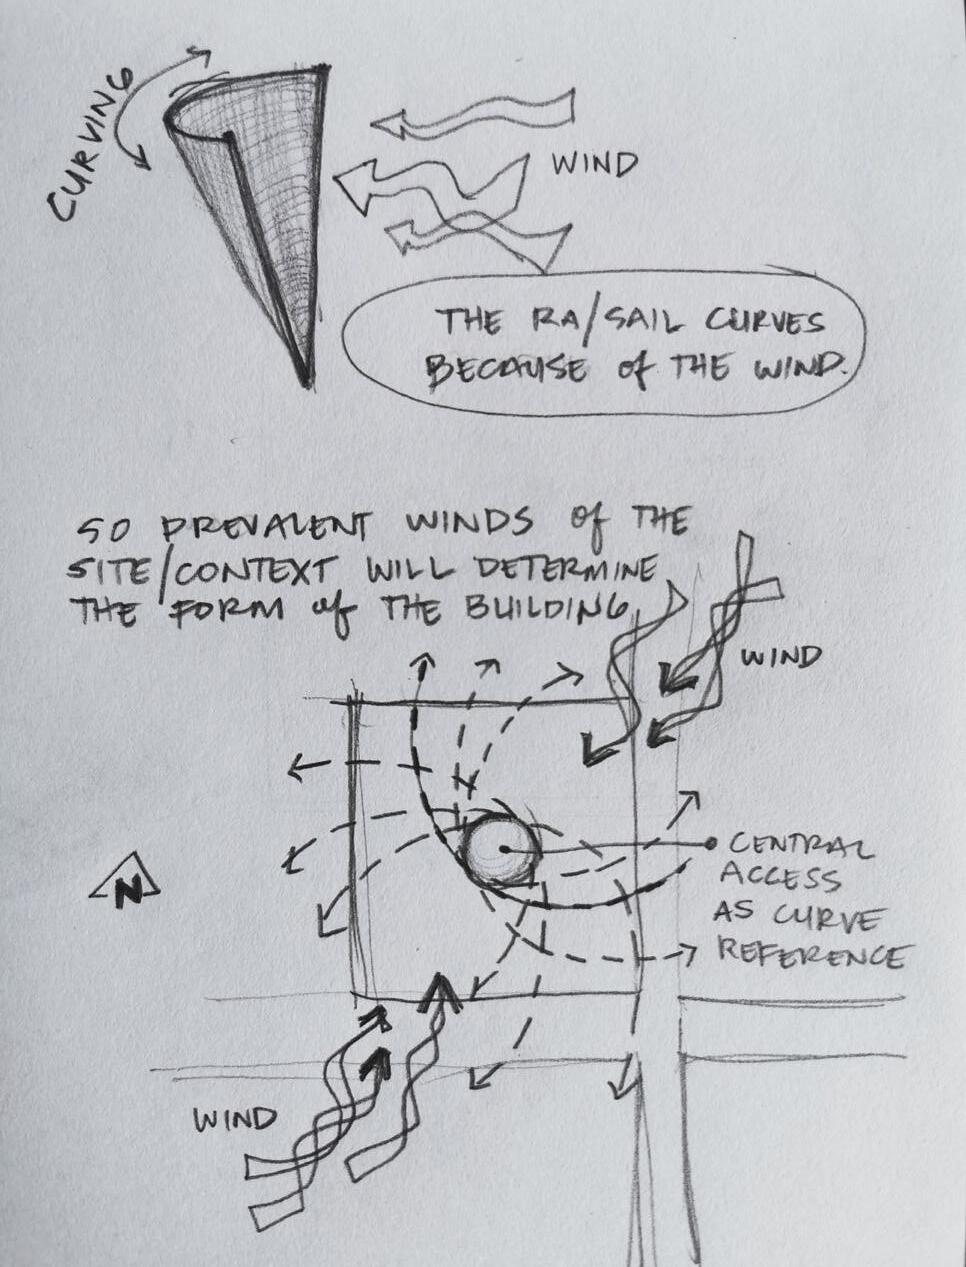 CURVING
WIND
THE RA/SAIL CURVES
BECAUSE of THE WIND.
SO PREVALENT WINDS of THE
SITE/CONTEXT WILL DETERMINE
THE FORM of THE BUILDING
WIND
CENTRAL
ACCESS
AS CURVE
REFERENCE
N
WIND